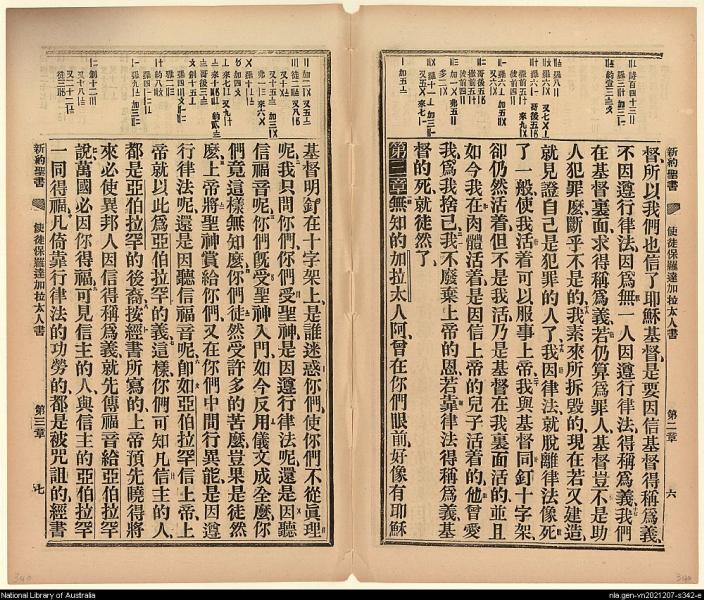 新約聖書
使徒保羅達加拉太人書
第二章
六
督、所以我們也信了耶穌基督、是要因信基督得稱爲義、
不因遵行律法、因爲無一人因遵行律法、得稱爲義、我們
在基督裏面求得稱爲義、若仍算爲罪人、基督豈不是助
人犯罪麽、斷乎不是的、我素來所拆毀的、現在若又建造、
就見證自己是犯罪的人了、我因律法就脫離律法、像死
了一般、使我活着可以服事上帝、我與基督同釘十字架、
卻仍然活着、但不是我活、乃是基督在我裏面活的、並且
如今我在肉體活着、是因信上帝的兒子活着的、他曾愛
我、爲我捨己、我不廢棄上帝的恩、若靠律法得稱爲義、基
督的死就徒然了、
第三章無知的加拉太人阿、曾在你們眼前、好像有耶穌
基督明釘在十字架上、是誰迷惑你們、使你們不從眞理
呢、我只問你們、你們受聖神、是因遵行律法呢、還是因聽
信福音呢、你們旣受聖神入門、如今反用儀文成全麽、你
們竟這樣無知麽、你們徒然受許多的苦麽、豈果是徒然
麽、上帝將聖神賞給你們、又在你們中間行異能、是因遵
行律法呢、還是因聽信福音呢、卽如亞伯拉罕信上帝、上
帝就以此爲亞伯拉罕的義、這樣你們可知凡信主的人、
都是亞伯拉罕的後裔、按經書所寫的、上帝預先曉得將
來必使異邦人因信得稱爲義、就先傳福音給亞伯拉罕
說、萬國必因你得福、可見信主的人、與信主的亞伯拉罕
一同得福、凡倚靠行律法的功勞的、都是被咒詛的、經書
新約聖書
使徒保羅達加拉太人書
第三章
七
National Library of Australia
nla.gen-vn2021207-s342-e